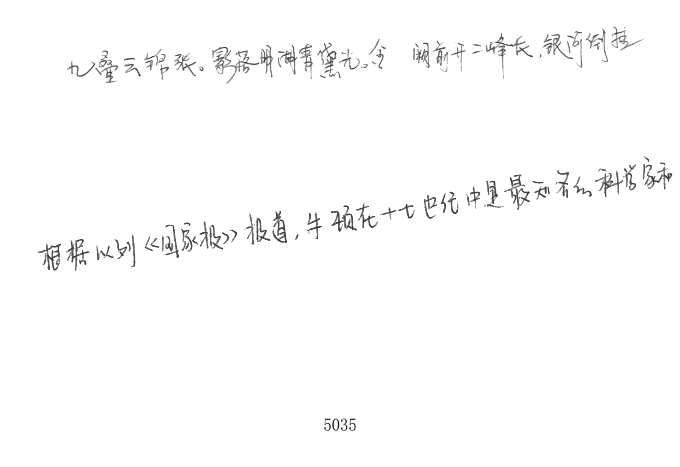 九叠云锦张。影落明湖青黛光。金 阙前开二峰长,银河倒挂
根据以列《国家报》报道,牛顿在十七世纪中是最知名的科学家和
5035